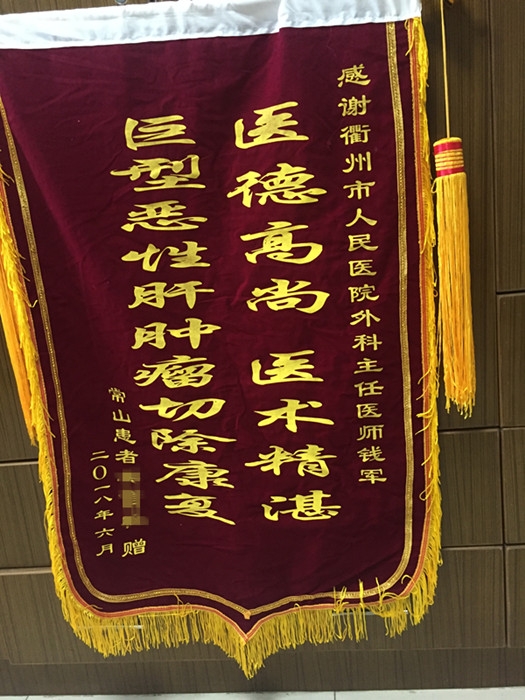 感谢衢州市人民医院外科主任医师钱军
医德高尚 医术精湛
巨型恶性肝肿瘤切除康复
常山患者 赠
二〇一八年六月